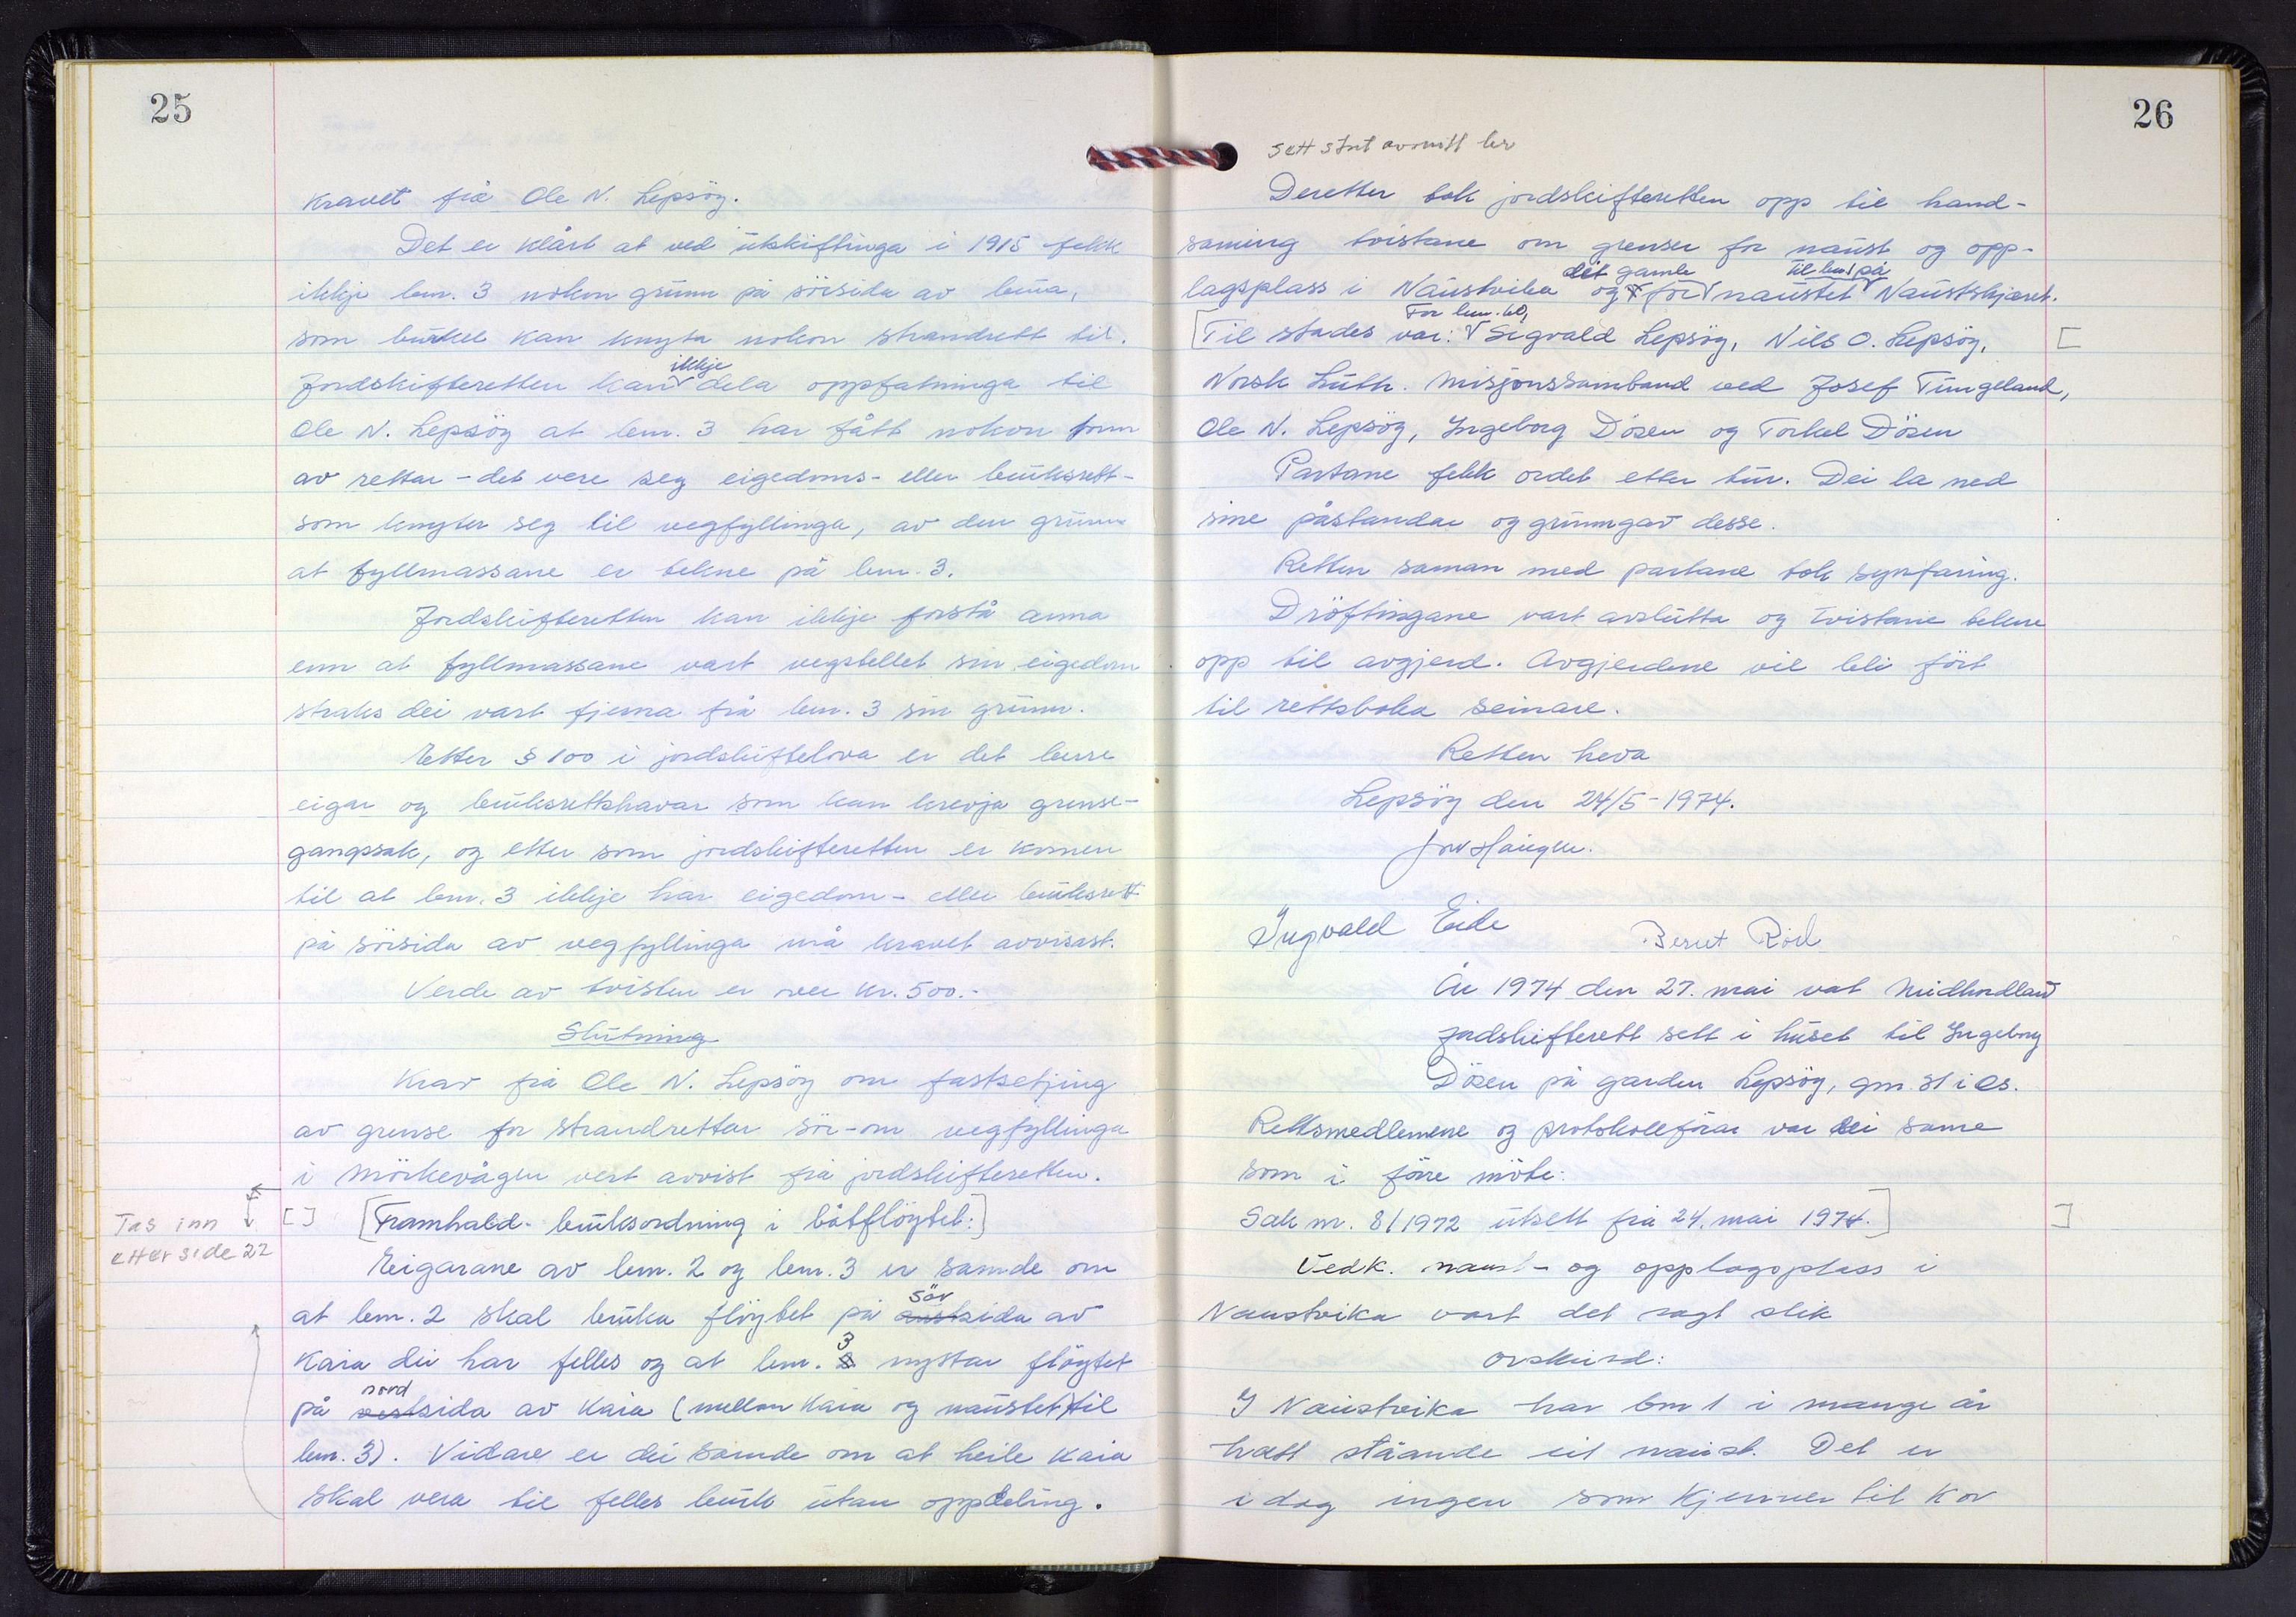 25
kravet frå Ole N. Lepsöy.
Det er klårt at ved utskiftinga i 1915 fekk
ikkje bnr. 3 nokon grunn på sörsida av brua,
som bruket kan knyta nokon strandrett til.
Jordskifteretten kan ikkje dela oppfatninga til
Ole N. Lepsöy at bnr. 3 har fått nokon form
av rettar - det vere seg eigedoms- eller bruksrett-
som knyter seg til vegfyllinga, av den grunn
at fyllmassane er tekne på bnr. 3.
Jordskifteretten kan ikkje forstå anna
enn at fyllmassane vart vegstellet sin eigedom
straks dei vart fjerna frå bnr. 3 sin grunn.
Etter § 100 i jordskiftelova er det berre
eigar og bruksrettshavar som kan krevja grense-
gangssak, og etter som jordskifteretten er komen
til at bnr. 3 ikkje har eigedom- eller bruksrett
på sörsida av vegfyllinga må kravet avvisast.
Verde av tvisten er over kr. 500.-
Slutning
Krav frå Ole N. Lepsöy om fastsetjing
av grense for strandrettar sör-om vegfyllinga
i Mörkevågen vert avvist frå jordskifteretten.
Tas inn
etter side 22
[ ] [Framhald. bruksordning i båtflöytet:]
Eigarane av bnr. 2 og bnr. 3 er samde om
at bnr. 2 skal bruka flöytet på austsida sör av
kaia dei har felles og at bnr. 3 nyttar flöytet
på vestsida nord av kaia (mellom kaia og naustet) til
bnr. 3). Vidare er dei samde om at heile kaia
skal vera til felles bruk utan oppdeling.
26
Sett slut avsnitt her
Deretter tok jordskifteretten opp til hand-
saming tvistane om grenser for naust og opp-
lagsplass i Naustvika og for det gamle naustet til bnr på Naustskjæret.
[Til stades var: For bnr. 60, Sigvald Lepsöy, Nils O. Lepsöy, [
Norsk Luth. Misjonssamband ved Josef Tungeland,
Ole N. Lepsöy, Ingeborg Dösen og Torkel Dösen
Partane fekk ordet etter tur. Dei la ned
sine påstandar og grunngav desse.
Retten saman med partane tok synfaring.
Dröftingane vart avslutta og tvistane tekne
opp til avgjerd. Avgjerdene vil bli fört
til rettsboka seinare.
Retten heva
Lepsöy den 24/5-1974.
Ingvald Eide
År 1974 den 27. mai vat Midhordland
jordskifterett sett i huset til Ingeborg
Dösen på garden Lepsöy, gnr. 31 i Os.
Rettsmedlemene og protokollförar var dei same
som i förre möte:
Sak nr. 8/1972 utsett frå 24. mai 1974.] ]
Vedk. naust- og opplagsplass i
Naustvika vart det sagt slik
orskurd:
I Naustvika har bnr 1 i mange år
hatt ståande eit naust. Det er
i dag ingen som kjenner til kor